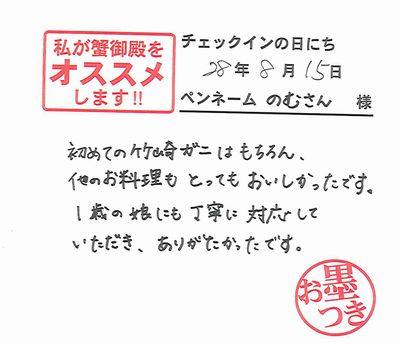 私が蟹御殿を
オススメ
します!!
チェックインの日にち
28年8月15日
ペンネーム のむさん 様
初めての竹崎ガニはもちろん、
他のお料理も とっても おいしかったです。
1歳の娘にも 丁寧に 対応して
いただき、ありがたかったです。
お墨つき